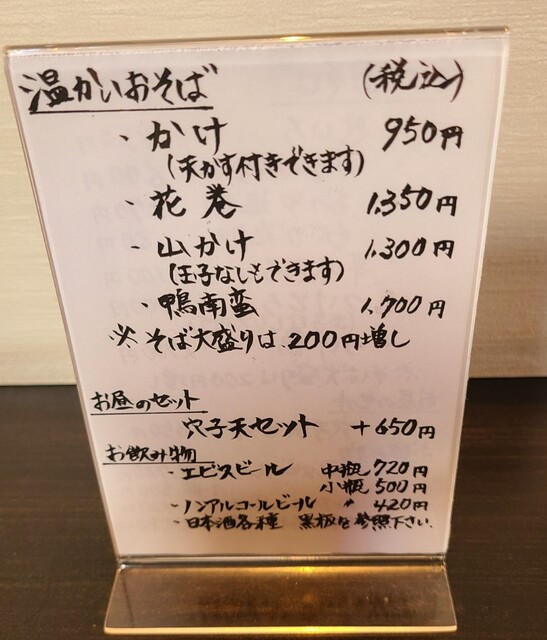 温かいおそば (税込)
・かけ 950円
(天かす付きできます)
・花巻 1,350円
・山かけ 1,300円
(玉子なしもできます)
・鴨南蛮 1,700円
※そば大盛りは、200円増し
お昼のセット
穴子天セット +650円
お飲み物
・エビスビール 中瓶 720円
小瓶 500円
・ノンアルコールビール 〃 420円
・日本酒各種 黒板を参照下さい。